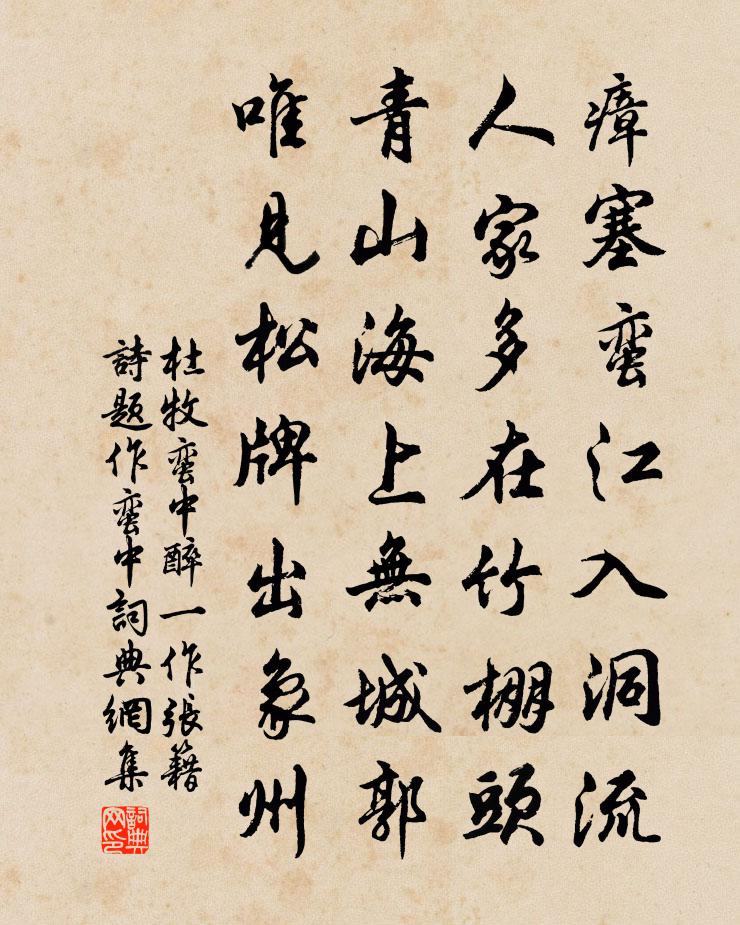 瘴塞蛮江入洞流
人家多在竹棚頭
青山海上無城郭
唯見松牌出象州
杜牧蛮中醉一作張籍
詩題作蛮中詞典網集
詞典网印